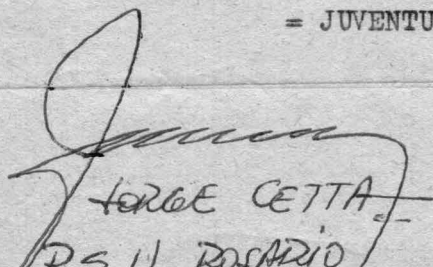 = JUVENTU
JORGE CETTA
P.S.U. ROSARIO